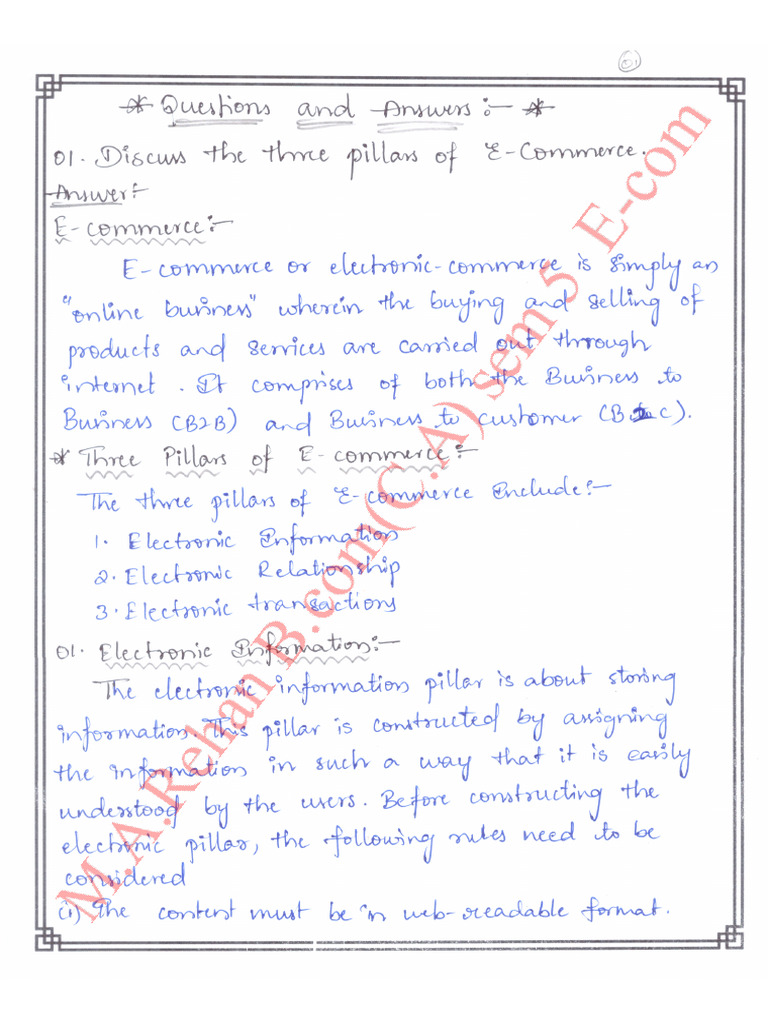 01
* Questions and Answers:- *
01. Discuss the three pillars of E-Commerce.
Answer:-
E-commerce:-
E-commerce or electronic-commerce is simply an
"online business" wherein the buying and selling of
products and services are carried out through
internet. It comprises of both the Business to
Business (B2B) and Business to customer (B2C).
* Three Pillars of E-commerce:-
The three pillars of E-commerce Include:-
1. Electronic Information
2. Electronic Relationship
3. Electronic transactions
01. Electronic Information:-
The electronic information pillar is about storing
information. This pillar is constructed by assigning
the information in such a way that it is easily
understood by the users. Before constructing the
electronic pillar, the following rules need to be
considered
(i) The content must be in web-readable format.
M.A.Rehan B.com(C.A) sem 5 E-com